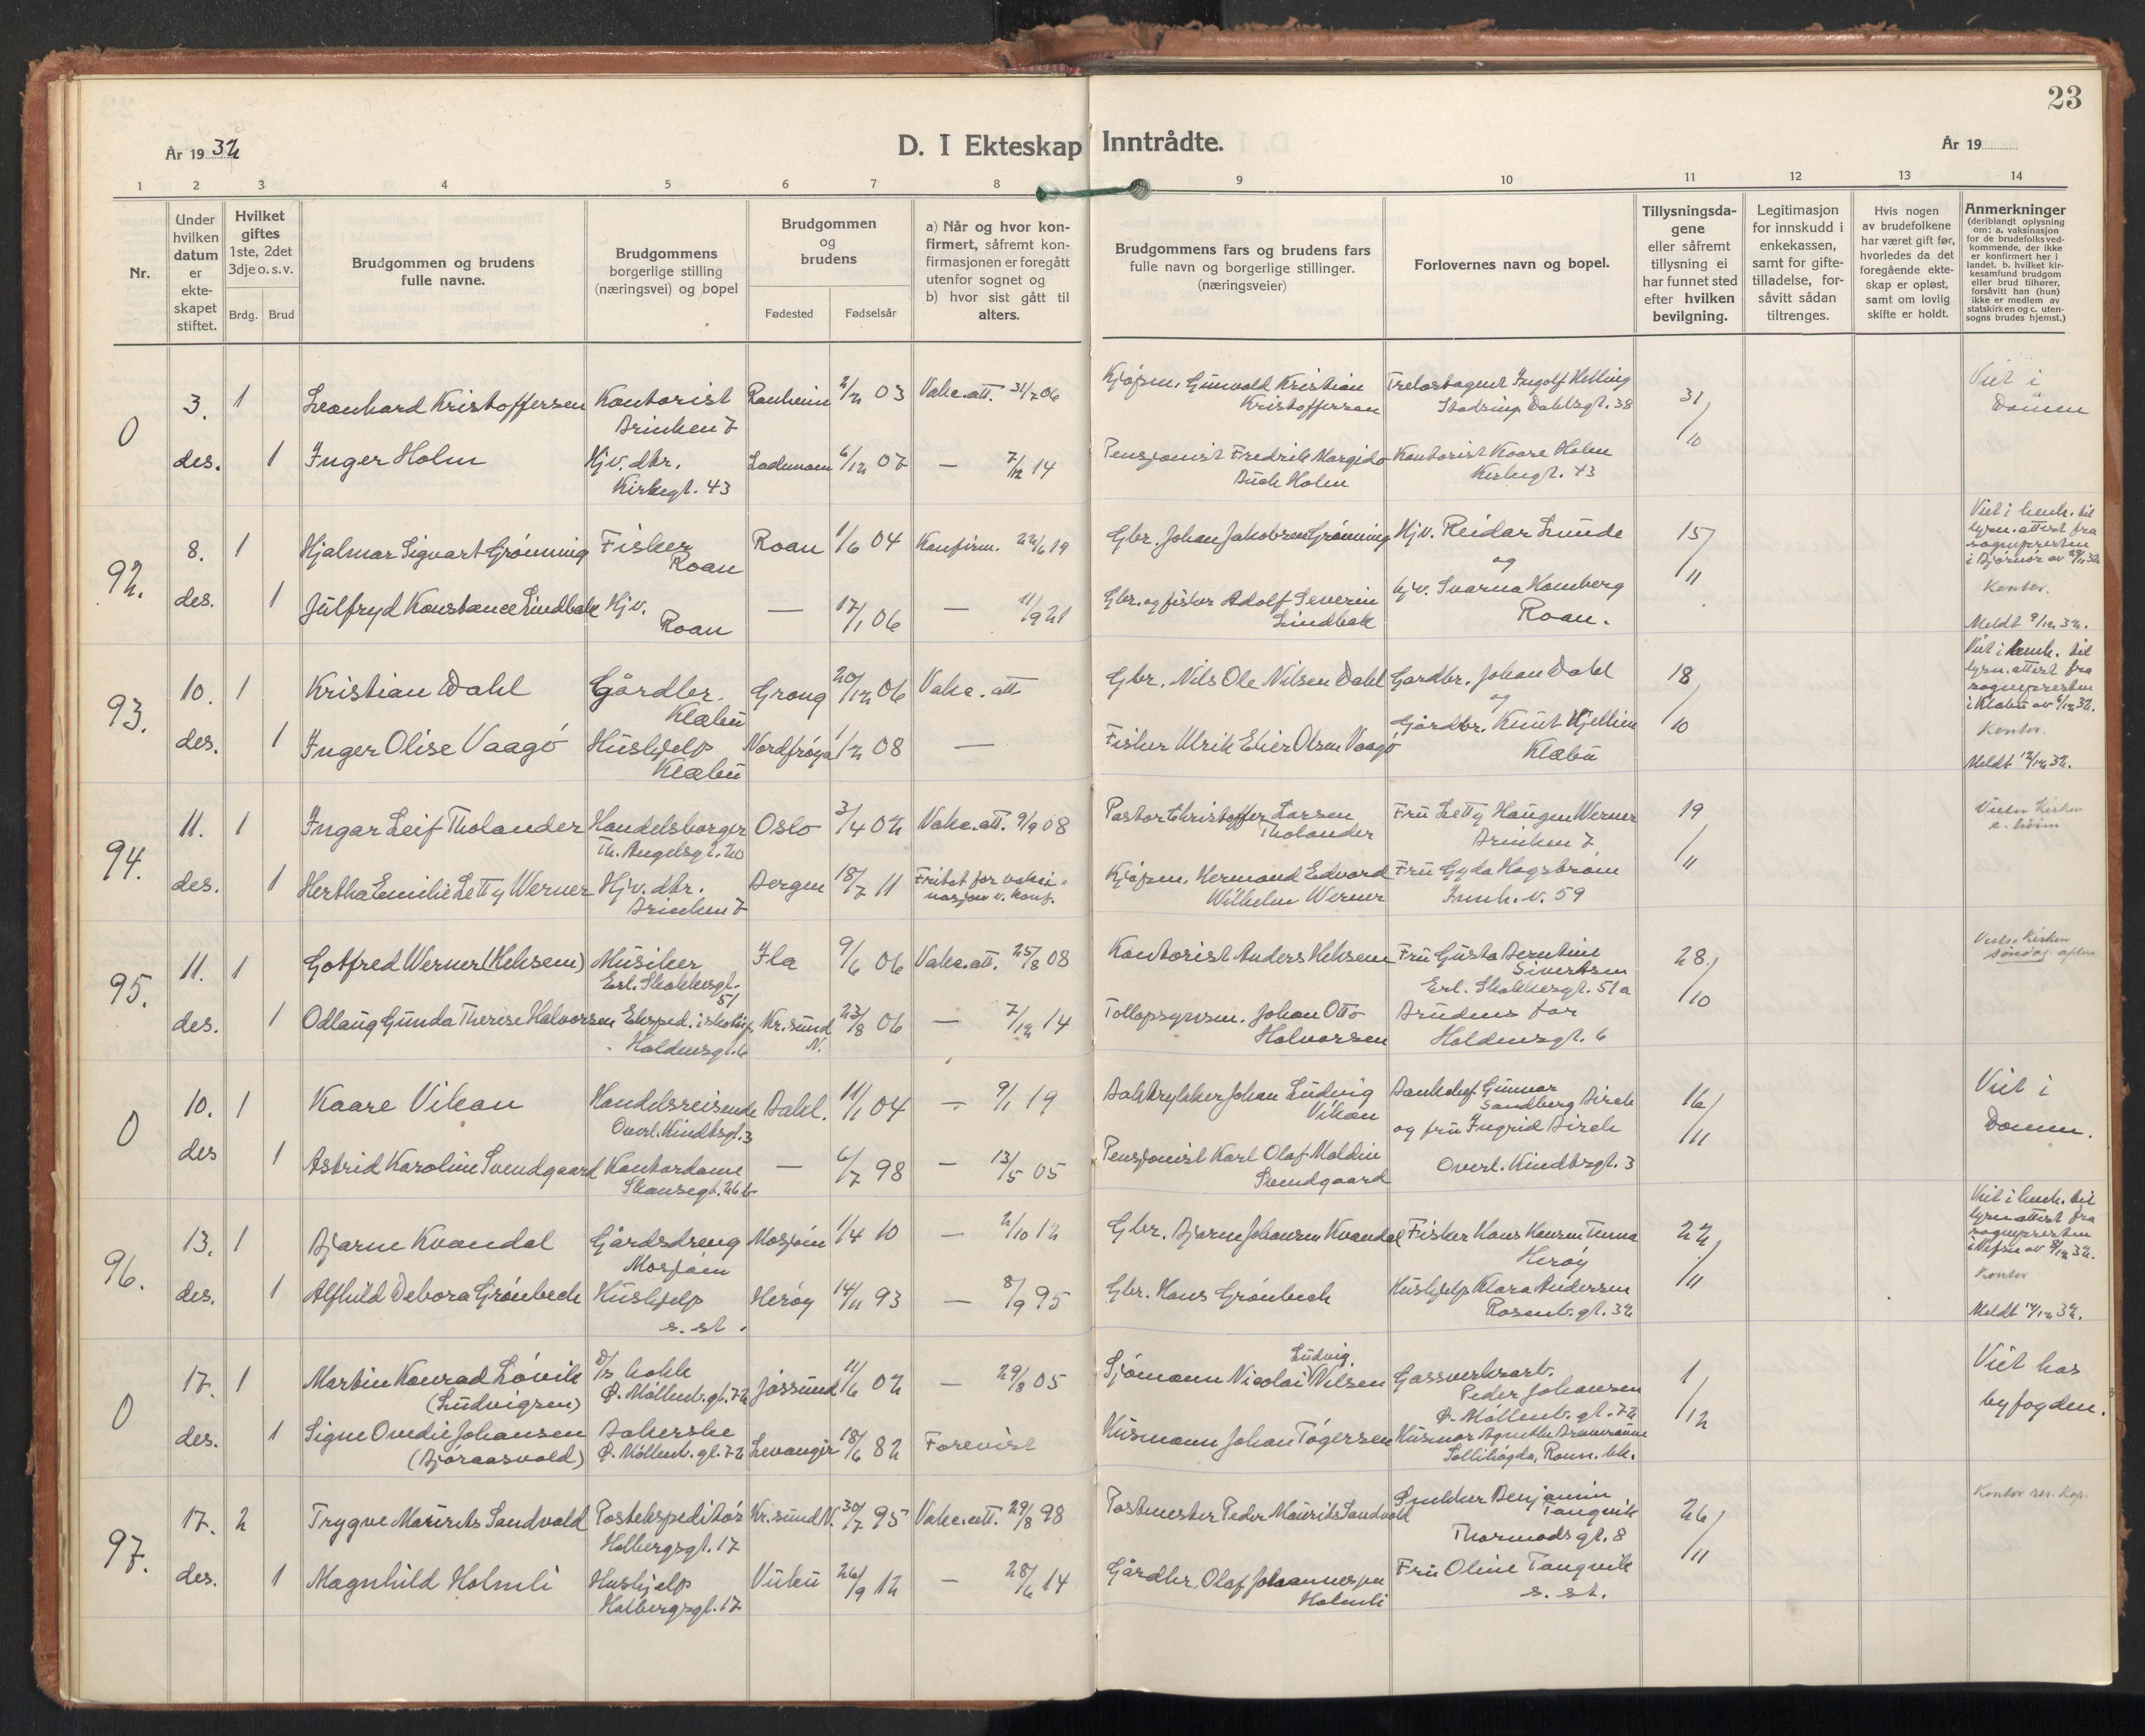 23
År 19 32
D. I Ekteskap Inntrådte.
År 19
1 2 3 4 5 6 7 8 9 10 11 12 13 14
Nr.
Under hvilken datum er ekte-skapet stiftet.
Hvilket giftes 1ste, 2det 3dje o. s. v.
Brdg. Brud
Brudgommen og brudens fulle navne.
Brudgommens borgerlige stilling (næringsvei) og bopel
Brudgommen og brudens
Fødested Fødselsår
a) Når og hvor kon-firmert, såfremt kon-firmasjonen er foregått utenfor sognet og
b) hvor sist gått til alters.
Brudgommens fars og brudens fars fulle navn og borgerlige stillinger. (næringsveier)
Forlovernes navn og bopel.
Tillysningsda-gene eller såfremt tillysning ei har funnet sted efter hvilken bevilgning.
Legitimasjon for innskudd i enkekassen, samt for gifte-tilladelse, for-såvitt sådan tiltrenges.
Hvis nogen av brudefolkene har været gift før, hvorledes da det foregående ekte-skap er opløst, samt om lovlig skifte er holdt.
Anmerkninger (deriblandt oplysning om: a. vaksinasjon for de brudefolks ved-kommende, der ikke er konfirmert her i landet. b. hvilket kir-kesamfund brudgom eller brud tilhører, forsåvitt han (hun) ikke er medlem av statskirken og c. uten-sogns brudes hjemst.)
0 3. 1 Leonhard Kristoffersen Kontorist Ranheim 2/2 03 Vakc. att. 31/7 06 Kjøpm. Gunvald Kristian Trelastagent Ingolf Helling 31/10 Viet i
Brinken 7 Kristoffersen Stadsing. Dahlsgt. 38 Domen
des. 1 Inger Holm Hjv. dtr. Lademoen 6/12 07 — 7/12 14 Pensjonist Fredrik Margido Kontorist Kaare Holm
Kirkegt. 43 Buck Holm Kirkegt. 43
92. 8. 1 Hjalmar Sigvart Grønning Fisker Roan 1/6 04 Konfirm. 22/6 19 Gbr. Johan Jakobsen Grønning Hjv. Reidar Lunde 15/11 Viet i henh. til
Roan og lysn. attest fra
sognepresten
i Bjørnør av 29/11 32
des. 1 Julfryd Konstance Lindbak Hjv. — 17/1 06 — 11/9 21 Gbr. og fisker Adolf Severin hjv. Svarna Homberg Kontor.
Roan Lindbak Roan. Meldt 9/12 32.
93. 10. 1 Kristian Dahl Gårdbr. Grong 20/12 06 Vakc. att Gbr. Nils Ole Nilsen Dahl Gardbr. Johan Dahl 18/10 Viet i henh. til
Klæbu og lysn. attest fra
sognepresten
i Klæbu av 6/12 32.
des. 1 Inger Olise Vaagø Hushjelp Nordfrøya 1/2 08 — Fisker Ulrik Elier Olsen Vaagø Gårdbr. Knut Hjellien Kontor.
Klæbu Klæbu Meldt 12/12 32.
94. 11. 1 Ingar Leif Tholander Handelsborger Oslo 3/4 02 Vakc. att. 9/9 08 Pastor Christoffer Larsen Fru Letty Haugen Werner 19/11
Th. Angelsgt. 20 Tholander Brinken 7
des. 1 Hertha Emilie Letty Werner Hjv. dtr. Bergen 18/7 11 Fritat for vaksi- Kjøpm. Hermand Edvard Fru Gyda Hagstrøm
Brinken 7 nasjon v. konf. Wilhelm Werner Innh. v. 59
95. 11. 1 Gotfred Werner (Heksem) Musiker Ila 9/6 06 Vakc. att. 25/8 08 Kontorist Anders Heksem Fru Gusta Berntine 28/10
Erl. Skakkesgt. 51 Sivertsen
Erl. Skakkesgt. 51a
des. 1 Odlaug Gunda Therese Halvorsen Eksped. i skotøi Kr. sund 23/8 06 — 7/12 14 Tollopsynsm. Johan Otto Brudens far
Holdensgt. 6 N. Halvorsen Holdensgt. 6
0 10. 1 Kaare Vikan Handelsreisende Bakl. 11/1 04 — 9/1 19 Boktrykker Johan Ludvig Bankchef Gunnar 16/11 Viet i
Overl. Kindtsgt. 3 Vikan Sandberg Birch Domen.
og fru Ingrid Birch
des 1 Astrid Karoline Svendgaard Kontordame — 6/7 98 — 13/5 05 Pensjonist Karl Olaf Moldin Overl. Kindtsgt. 3
Skansegt. 26b Svendgaard
96. 13. 1 Bjarne Kvandal Gårdsdreng Mosjøen 1/4 10 — 2/10 12 Gbr. Bjarne Johansen Kvandal Fisker Hans Hansen Tenna 22/11 Viet i henh. til
Mosjøen Herøy lysn attest fra
sognepresten
i Vefsn av 8/12 32.
des. 1 Alfhild Debora Grønbech Hushjelp Herøy 14/11 93 — 8/9 95 Gbr. Hans Grønbech Hushjelp Klara Andersen Kontor
s. st. Rosenb. gt. 32 Meldt 14/12 32.
0 17. 1 Martin Konrad Løvik D/s kokk Jøssund 11/6 02 — 29/8 05 Sjømann Nicolai Ludvig Nilsen Gassverksarb. 1/12 Viet hos
(Ludvigsen) Ø. Møllenb. gt. 72 Peder Johansen byfogden.
Ø. Møllenb. gt. 72
des. 1 Signe Ovedie Johansen Bakerske Levanger 18/6 82 Forevist Husmann Johan Togersen Husmor Agnethe
(Bjøraasvold) Ø. Møllenb. gt. 72 Sollihøgda,
97. 17. 2 Trygve Maurits Sandvold Postekspeditør Kr. sund N. 30/7 95 Vakc. att. 29/8 98 Postmester Peder Maurits Sandvold Snekker Benjamin 26/11 Kontor
Holbergsgt. 17 Tangvik
Thormods gt. 8
des. 1 Magnhild Holmli Hushjelp Vuku 26/9 12 — 28/6 14 Gårdbr. Olaf Johannessen Fru Oline Tangvik
Holbergsgt. 17 Holmli s. st.